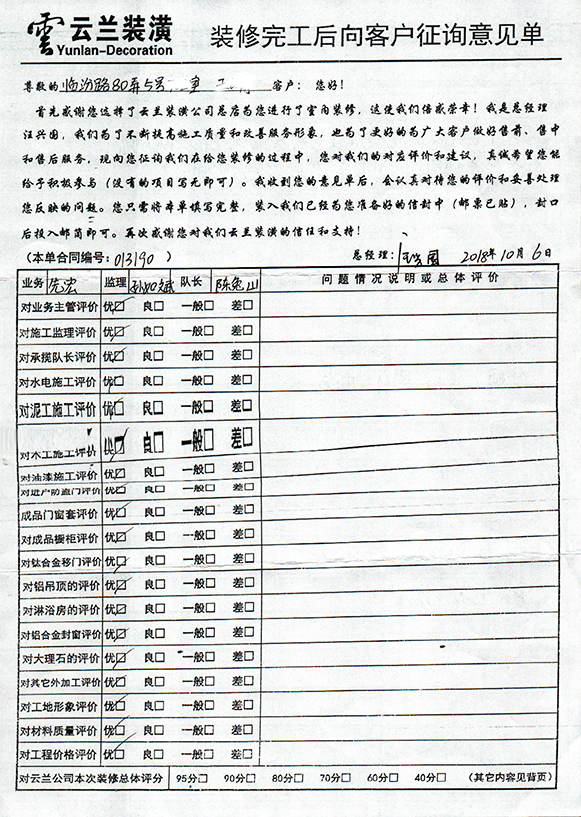 雲 云兰装潢
Yunlan-Decoration
装修完工后向客户征询意见单
尊敬的 临汾路80弄5号 客户：您好！
首先感谢您选择了云兰装潢公司总店为您进行了室内装修，这使我们倍感荣幸！我是总经理
汪兴国，我们为了不断提高施工质量和改善服务形象，也为了更好的为广大客户做好售前、售中
和售后服务，现向您征询我们在给您装修的过程中，您对我们的对应评价和建议，真诚希望您能
给予积极参与（没有的项目写无即可）。我收到您的意见单后，会认真对待您的评价和妥善处理
您反映的问题。您只需将本单填写完整，装入我们已经为您准备好的信封中（邮票已贴），封口
后投入邮筒即可。再次感谢您对我们云兰装潢的信任和支持！
（本单合同编号：013190 ） 总经理： 2018年10月6日
业务 监理 队长 问题情况说明或总体评价
对业务主管评价 优□ 良□ 一般□ 差□
对施工监理评价 优□ 良□ 一般□ 差□
对承揽队长评价 优□ 良□ 一般□ 差□
对水电施工评价 优□ 良□ 一般□ 差□
对泥工施工评价 优□ 良□ 一般□ 差□
对木工施工评价 优□ 良□ 一般□ 差□
对油漆施工评价 优□ 良□ 一般□ 差□
对进户防盗门评价 优□ 良□ 一般□ 差□
成品门窗套评价 优□ 良□ 一般□ 差□
对成品橱柜评价 优□ 良□ 一般□ 差□
对钛合金移门评价 优□ 良□ 一般□ 差□
对铝吊顶的评价 优□ 良□ 一般□ 差□
对淋浴房的评价 优□ 良□ 一般□ 差□
对铝合金封窗评价 优□ 良□ 一般□ 差□
对大理石的评价 优□ 良□ 一般□ 差□
对其它外加工评价 优□ 良□ 一般□ 差□
对工地形象评价 优□ 良□ 一般□ 差□
对材料质量评价 优□ 良□ 一般□ 差□
对工程价格评价 优□ 良□ 一般□ 差□
对云兰公司本次装修总体评分 95分□ 90分□ 80分□ 70分□ 60分□ 40分□ （其它内容见背页）